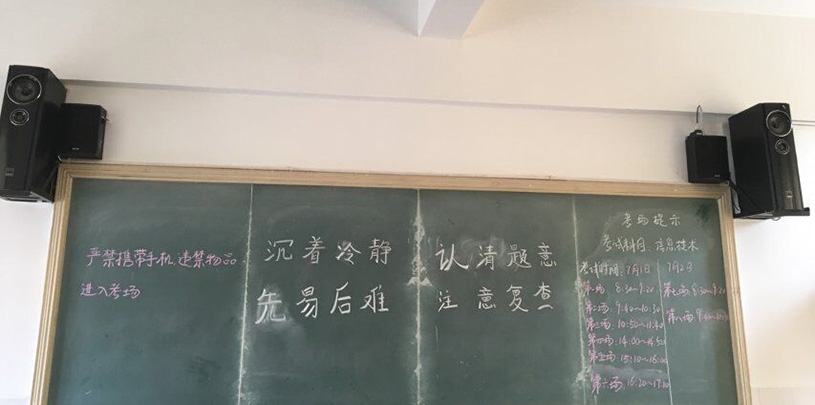 严禁携带手机.违禁物品
进入考场
沉着冷静
先易后难
认清题意
注意复查
考场提示
考试科目:信息技术
考试时间:7月1日 7月2日
第一场 8:30~9:20
第二场:9:40~10:30
第三场:10:50~11:40
第四场:14:00~14:50
第五场:15:10~16:00
第六场:16:20~17:10
第七场:8:30~9:20
第八场:9:40~10:30